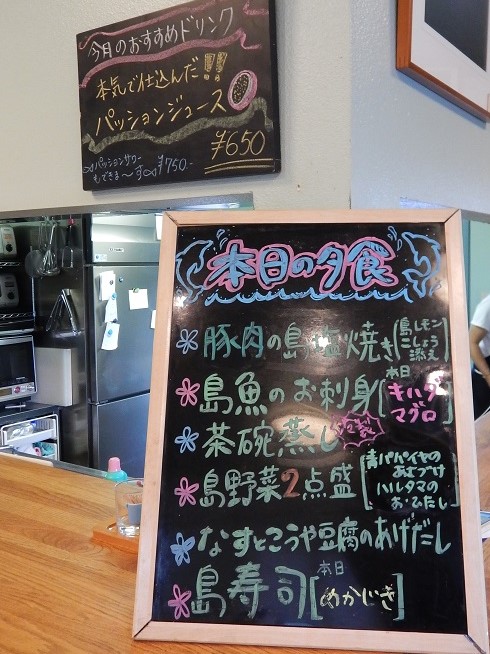 今日のおすすめドリンク
本気で仕込んだ!!
パッションジュース
¥650
パッションサワー
もできま〜す ¥750-
本日の夕食
豚肉の島塩焼き[島レモン
こしょう
添え]
島魚のお刺身[本日
キハダ
マグロ]
茶碗蒸し
島野菜2点盛[青パパイヤの
ハルタマの
おひたし]
なすとこうや豆腐のあげだし
島寿司[本日
めかじき]